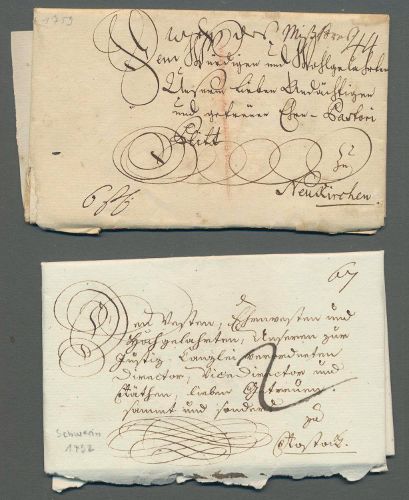 1759
Dem Würdigen und Wohlgelahrten
Unserm lieben Andächtigen
und getreuen Ehen-Pastori
Plitt
zu
Neukirchen.
67
Den Vesten, Ehrenvesten und
Hochgelahrten, Unseren zur
Justiz Canzlei verordneten
Director, Vice Director und
Räthen, lieben Getreuen.
sammt und sonders
2
zu
Rostock.
Schwerin
1792